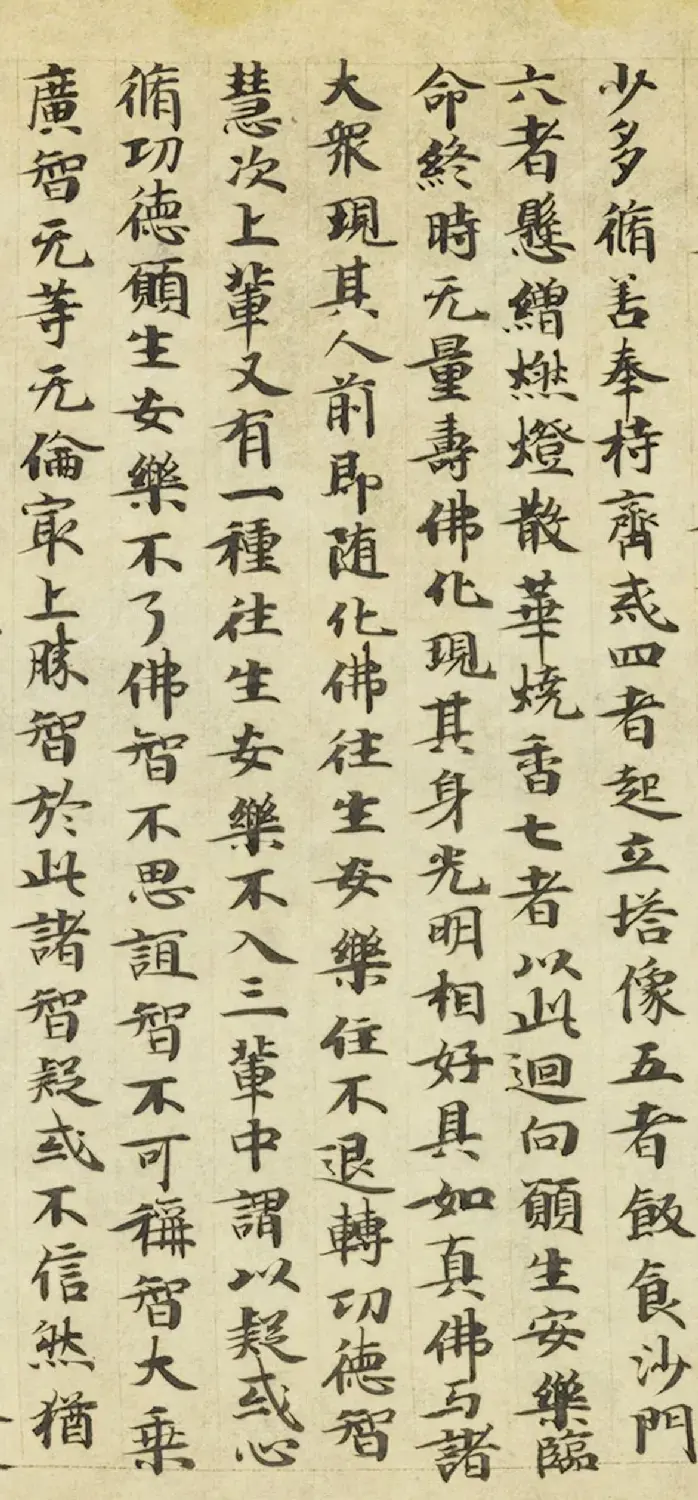 少多脩善奉持齊戒四者起立塔像五者飯食沙門
六者懸繒燃燈散華燒香七者以此迴向願生安樂臨
命終時无量壽佛化現其身光明相好具如真佛与諸
大衆現其人前即随化佛往生安樂住不退轉功德智
慧次上輩又有一種往生安樂不入三輩中謂以疑或心
脩功德願生安樂不了佛智不思誼智不可稱智大乗
廣智无等无倫冣上勝智於此諸智疑或不信然猶